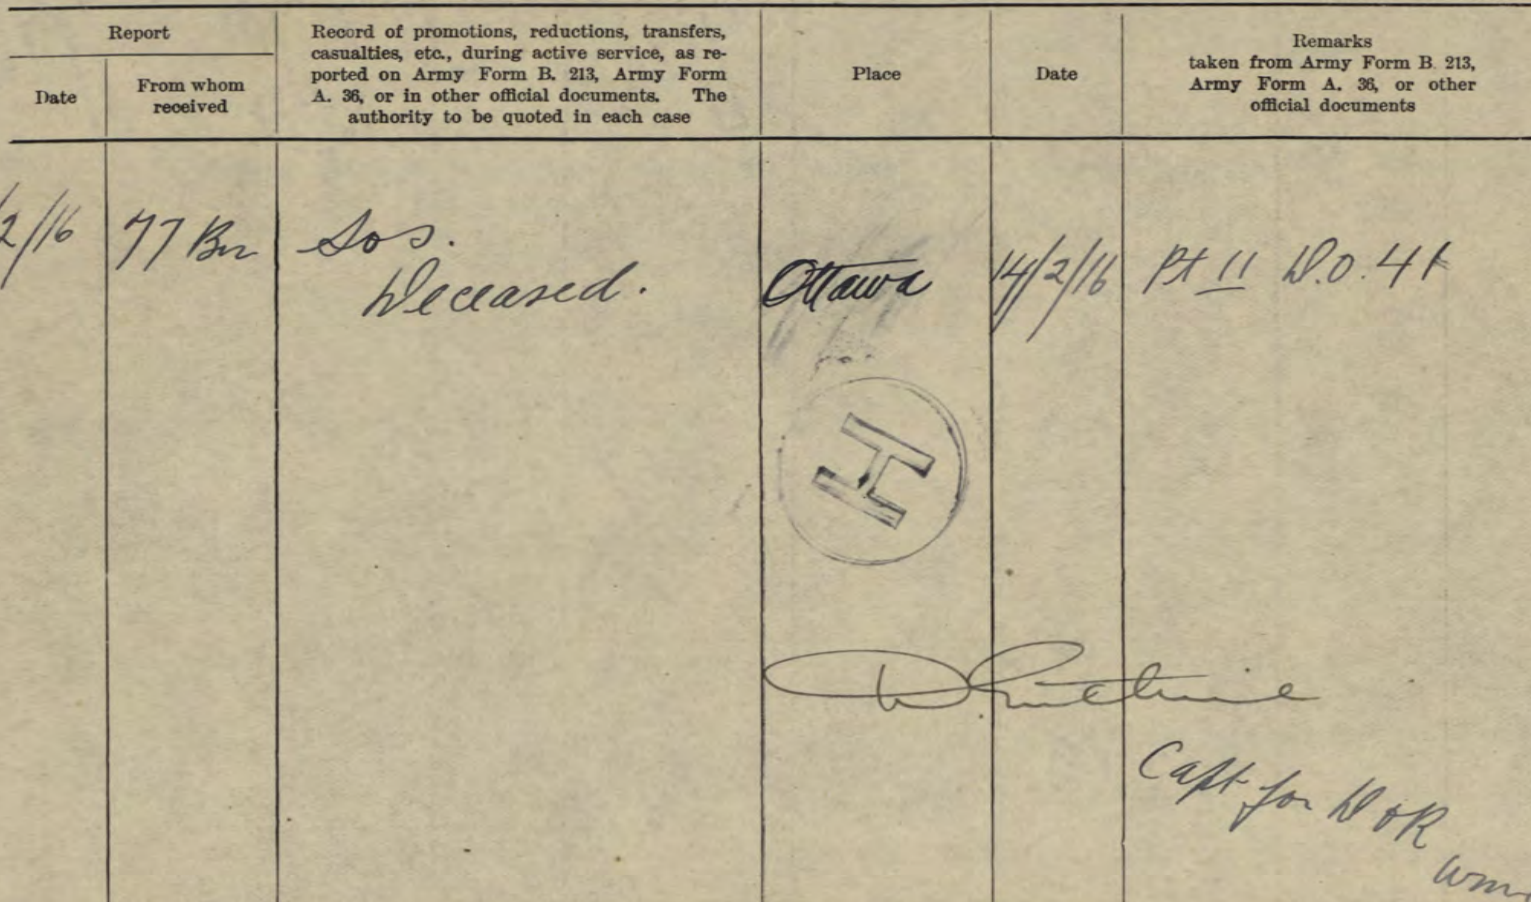 Report
Date
From whom
received
Record of promotions, reductions, transfers,
casualties, etc., during active service, as re-
ported on Army Form B. 213, Army Form
A. 36, or in other official documents. The
authority to be quoted in each case
Place
Date
Remarks
taken from Army Form B. 213,
Army Form A. 36, or other
official documents
2/16 77 Bn SOS.
Deceased. Ottawa 14/2/16 Pt II D.O. 41
H
Capt for D of R